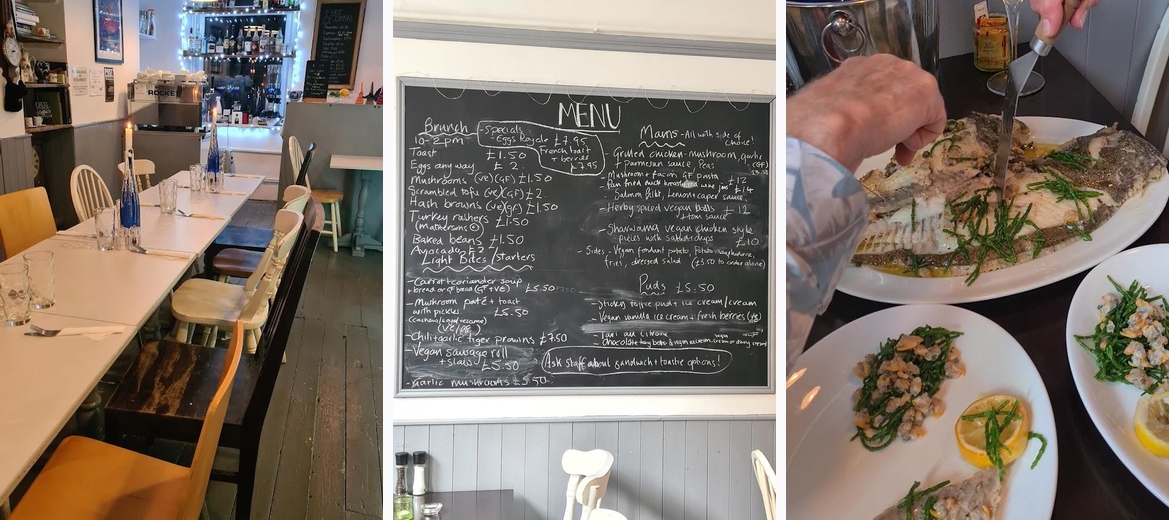 ROCKET
MENU
Brunch
10-2pm
-Specials
-Eggs Royale £7.95
French toast
+ berries
£7.95
Toast £1.50
Eggs any way £2
Mushrooms (ve)(GF) £1.50
Scrambled tofu (ve)(GF) £2
Hash browns (ve)(gf) £1.50
Turkey rashers
£1.50
Baked beans £1.50
Avocado £2
Light Bites/Starters
-Carrot+coriander soup
+bread or GF bread (GF+VE) £5.50
-Mushroom paté + toast
with pickles £5.50
(ve/gf)
-Chilli+garlic tiger prawns £7.50
-Vegan sausage roll
+slaw £5.50
-Garlic mushrooms £5.50
Mains -All with side of
choice!
-Grilled chicken-mushroom, garlic
+Parmesan sauce, Peas (GF)
-Mushroom + GF pasta £12
-Pan fried duck breast wine jus £14
Salmon fillet, Lemon+caper sauce
-Herby spiced vegan balls £12
+tom sauce
-Shawarma vegan chicken style
pieces with salad+dips £10
-Sides -Vegan fondant potato,
fries, dressed salad (£3.50 to order alone)
Puds £5.50
-Sticky toffee pud + ice cream/cream
-Vegan vanilla ice cream + fresh berries (ve)
-Tart au Citron
-Chocolate
Ask Staff about Sandwich+toastie options!